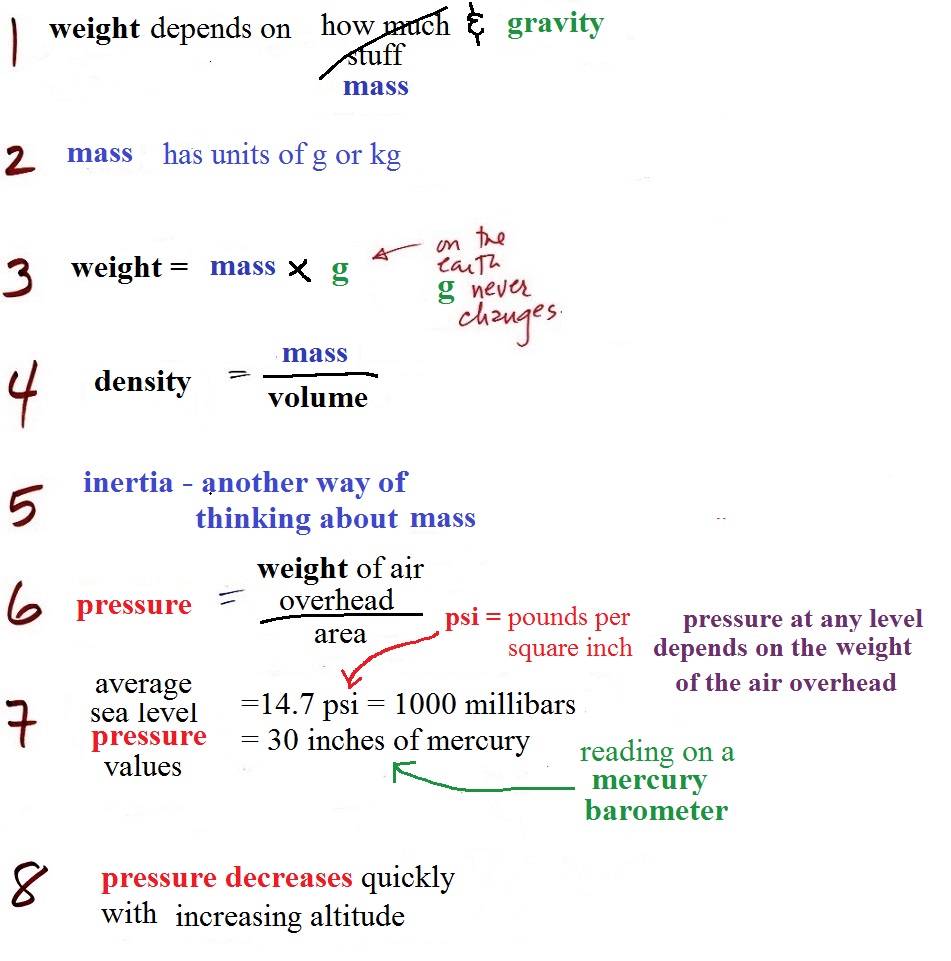 1 weight depends on how much & gravity
stuff
mass
2 mass has units of g or kg
3 weight = mass × g
on the
earth
g never
changes.
4 density = mass
volume
5 inertia - another way of
thinking about mass
6 pressure = weight of air
overhead
area
psi = pounds per
square inch
pressure at any level
depends on the weight
of the air overhead
7 average
sea level
pressure
values
=14.7 psi = 1000 millibars
= 30 inches of mercury
reading on a
mercury
barometer
8 pressure decreases quickly
with increasing altitude